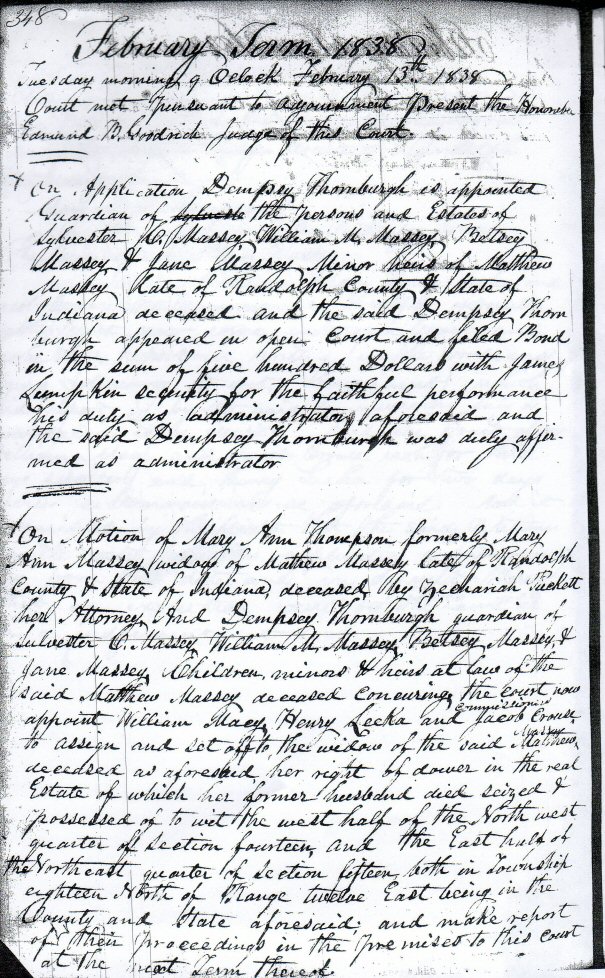 348
February Term 1838
Tuesday morning 9 Oclock February 13th 1838
Court met pursuant to adjournment Present the Honorable
Edmund B. Goodrich Judge of this Court.
x On Application Dempsey Thornburgh is appointed
Guardian of the persons and Estates of
Sylvester C. Massey William M. Massey Betsey
Massey & Jane Massey Minor heirs of Matthew
Massey late of Randolph County & State of
Indiana deceased and the said Dempsey Thorn
burgh appeared in open Court and filed Bond
in the sum of five hundred Dollars with James
Lumpkin security for the faithful performance
his duty as administrator aforesaid and
the said Dempsey Thornburgh was duly affir-
med as administrator
x On Motion of Mary Ann Thompson formerly Mary
Ann Massey widow of Mathew Massey late of Randolph
County & State of Indiana, deceased by Zechariah Puckett
her Attorney And Dempsey Thornburgh guardian of
Sulvester C. Massey William M. Massey Betsey Massey, &
Jane Massey Children, minors & heirs at law of the
said Matthew Massey deceased concuring the court now
appoint William Macy, Henry Lecka and Jacob Crouse commissioners
to assign and set off to the widow of the said Matthew Massey
deceased as aforesaid, her right of dower in the real
Estate of which her former husband died seized &
possessed of to wit the west half of the North west
quarter of Section fourteen, and the East half of
the Northeast quarter of section fifteen, both in Township
eighteen North of Range twelve East being in the
County and State aforesaid; and make report
of their proceedings in the premises to this court
at the next Term thereof